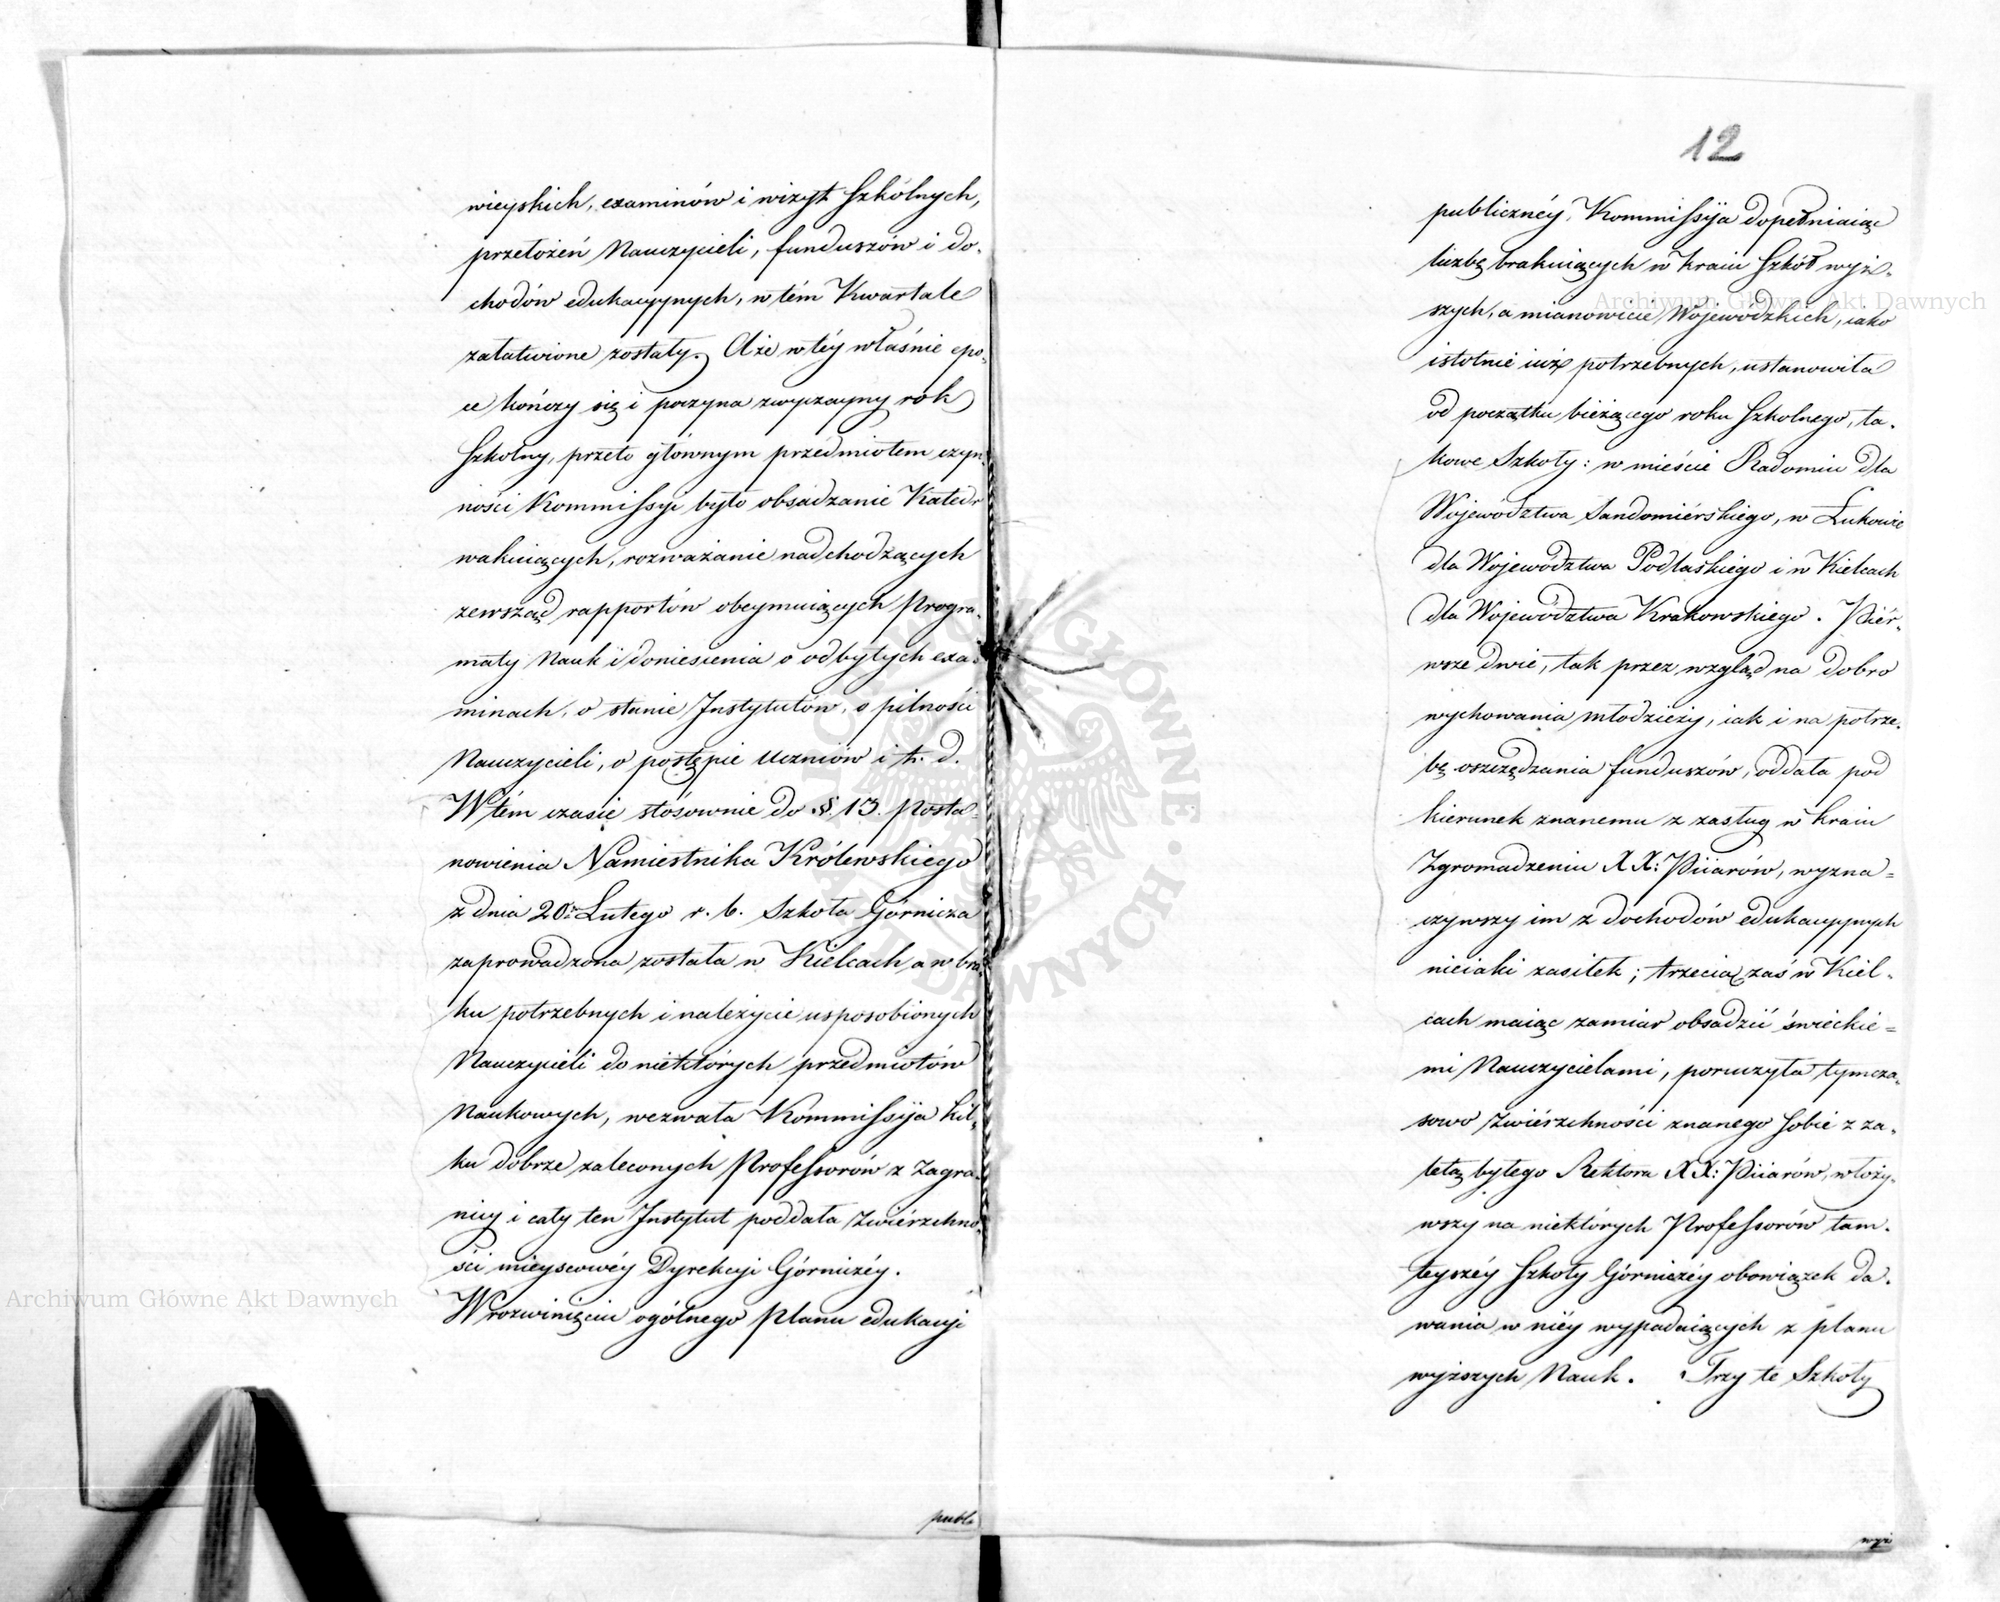 wieyskich, examinów i wizyt Szkólnych,
przełożeń Nauczycieli, funduszów i do-
chodów edukacyynych, w tém Kwartale
załatwione zostały. Aże w téy właśnie epo-
ce kończy się i poczyna zwyczayny rok
Szkolny, przeto głównym przedmiotem czyn-
ności Kommissyi było obsadzanie Katedr
wakuiących, rozważanie nadchodzących
zewsząd rapportów obeymuiących Progra-
maty Nauk i doniesienia o odbytych exa-
minach, o stanie Instytutów, o pilności
Nauczycieli, o postępie Uczniów i t. d.
W tém czasie stósownie do §. 13. Posta-
nowienia Namiestnika Królewskiego
z dnia 20go Lutego r. b. Szkoła Górnicza
zaprowadzona została w Kielcach, a w bra-
ku potrzebnych i należycie usposobionych
Nauczycieli do niektórych przedmiotów
Naukowych, wezwała Kommissyja kil-
ku dobrze zaleconych Professorów z Zagra-
nicy i cały ten Instytut poddała Zwiérzchno-
ści mieyscowéy Dyrekcyi Górniczéy.
W rozwinięciu ogólnego Planu edukacyi
publi
12
publicznéy, Kommissyja dopełniaiąc
liczbę brakuiących w kraiu Szkół wyż-
szych, a mianowicie Wojewódzkich, iako
istotnie iuż potrzebnych, ustanowiła
od początku bieżącego roku Szkolnego, ta-
kowe Szkoły: w mieście Radomiu dla
Województwa Sandomiérskiego, w Łukowie
dla Województwa Podlaskiego i w Kielcach
dla Województwa Krakowskiego. Piér-
wsze dwie, tak przez wzgląd na dobro
wychowania młodzieży, iak i na potrze-
bę oszczędzania funduszów, oddała pod
kierunek znanemu z zasług w kraiu
Zgromadzeniu XX: Piiarów, wyzna-
czywszy im z dochodów edukacyynych
nieiaki zasiłek; trzecią zaś w Kiel-
cach maiąc zamiar obsadzić świeckie-
mi Nauczycielami, poruczyła tymcza-
sowo Zwiérzchności znanego sobie z za-
letą byłego Rektora XX: Piiarów, włoży-
wszy na niektórych Professorów tam-
teyszéy Szkoły Górniczéy obowiązek da-
wania w niéy wypadaiących z planu
wyższych Nauk. Trzy te Szkoły
wyż
Archiwum Główne Akt Dawnych
Archiwum Główne Akt Dawnych